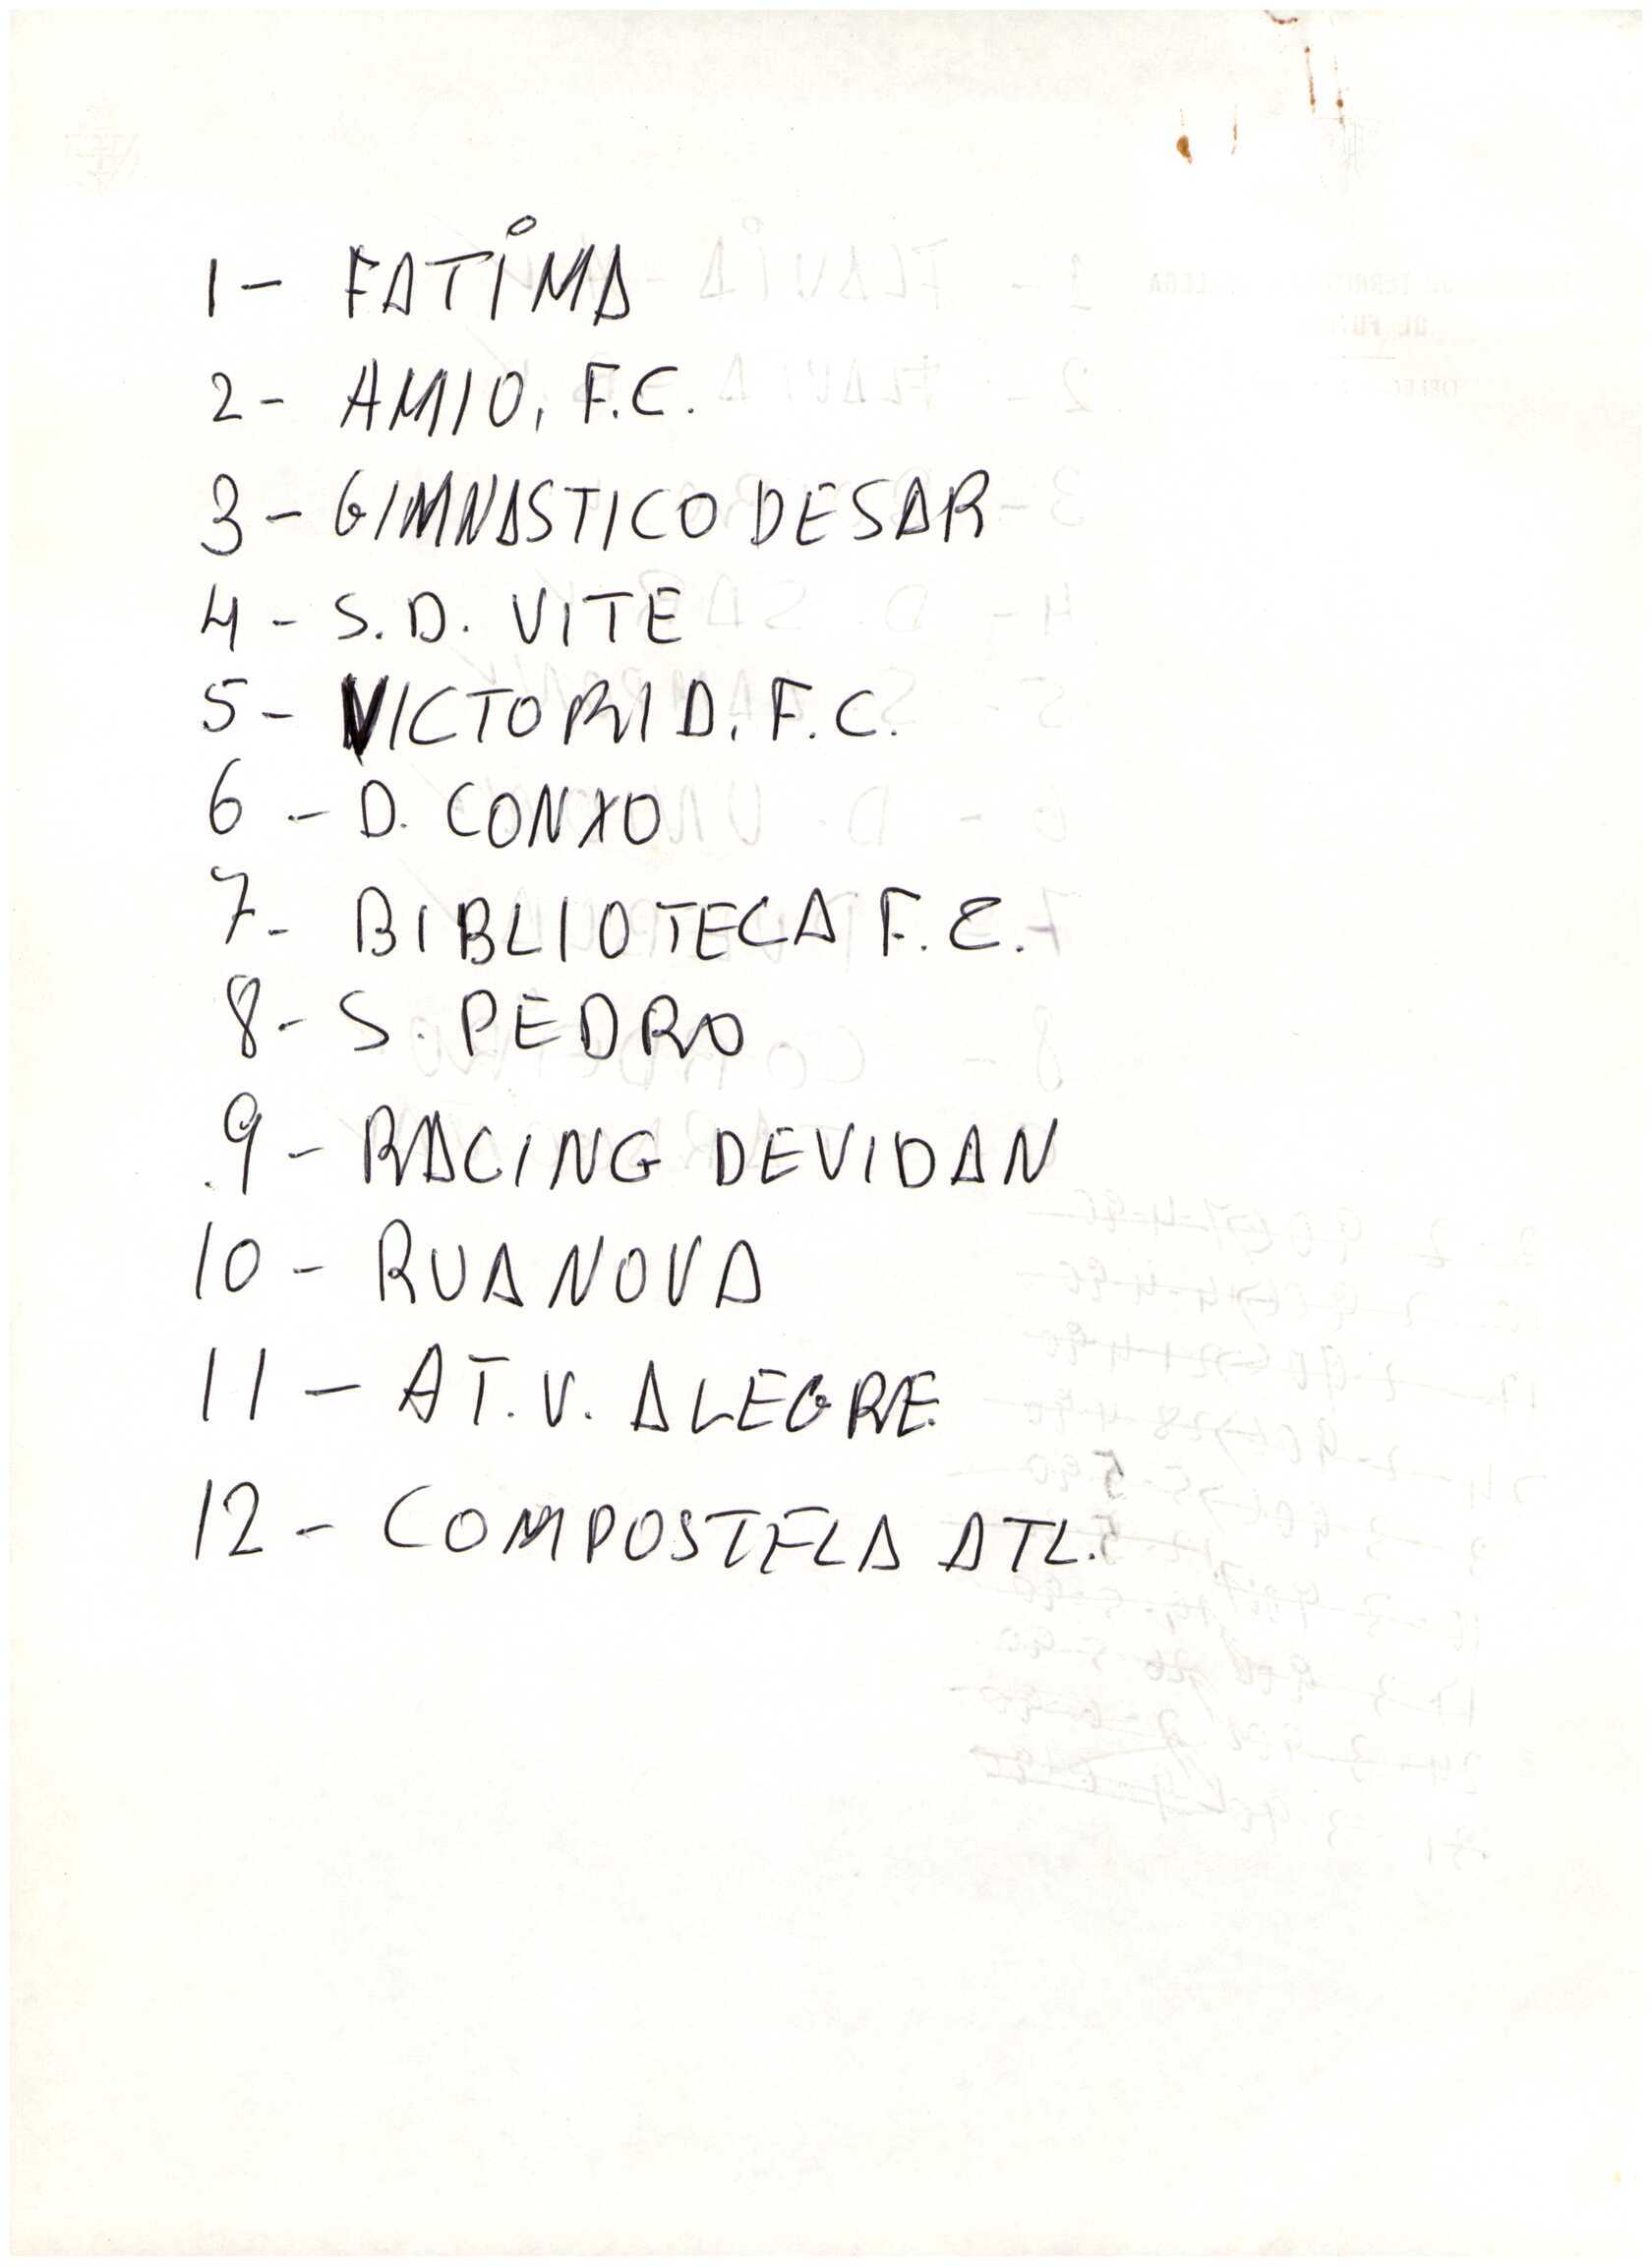 1- FATIMA
2- AMIO, F.C.
3- GIMNASTICO DE SAR
4- S.D. VITE
5- VICTORIA. F.C.
6- D. CONXO
7- BIBLIOTECA F.C.
8- S. PEDRO
9- RACING DEVIDAN
10- RUANOVA
11- AT. V. ALEGRE
12- COMPOSTELA ATL.